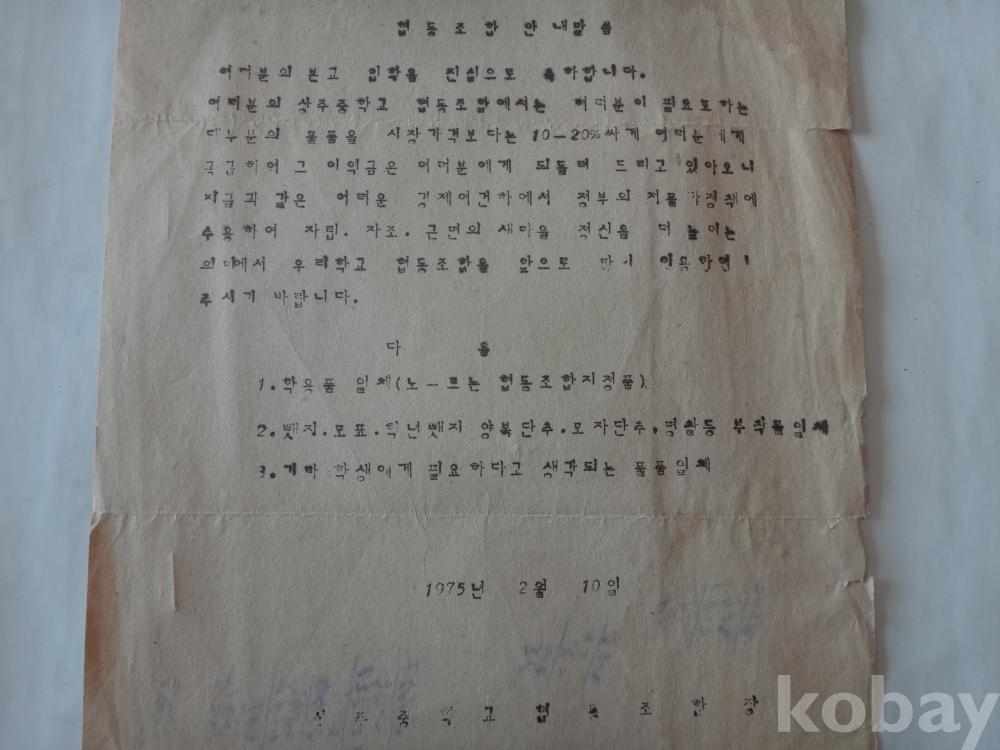 협동조합 안내말씀
여러분의 본교 입학을 진심으로 축하합니다.
여러분의 상주중학교 협동조합에서는 여러분이 필요로하는
대부분의 물품을 시장가격보다는 10-20%싸게 여러분에게
공급하여 그 이익금은 여러분에게 되돌려 드리고 있아오니
지금과 같은 어려운 경제여건하에서 정부의 저물가정책에
수응하여 자립. 자조. 근면의 새마을 정신을 더 높이는
의미에서 우리학교 협동조합을 앞으로 많이 이용하여
주시기 바랍니다.
다 음
1. 학용품 일체(노-트는 협동조합지정품)
2. 뺏징.모표.학년뺏지 양복단추.모자단추.명찰등 부착물일체
3. 기타 학생에게 필요하다고 생각되는 물품일체
1975년 2월 10일
상주중학교협동조합장
kobay